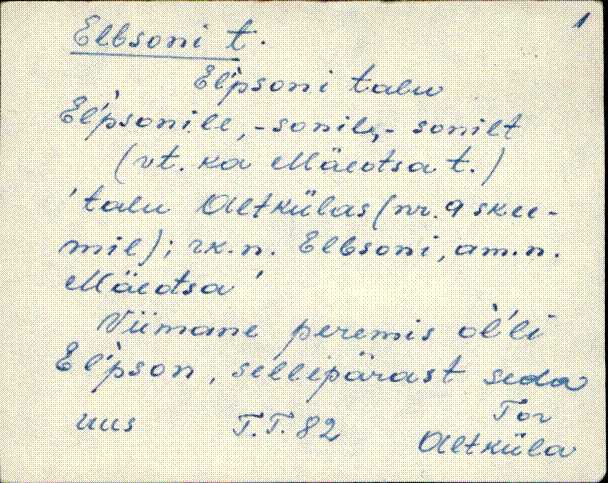 1
Elbsoni t.
El̀psoni talu
El̀psonile, -sonil, -sonilt
(vt. ka Mäeotsa t.)
'talu Altkülas (nr. 9 skee-
mil); rk.n. Elbsoni, am.n.
Mäeotsa'
Viimane peremis ol̀li
El̀pson, sellepärast seda
uus T.T. 82 Tor
Altküla